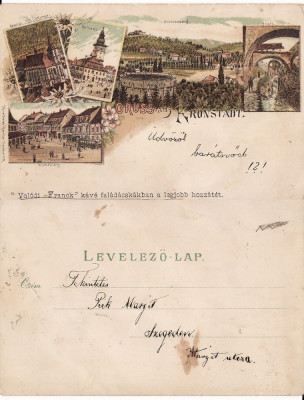 GRUSS AUS KRONSTADT.
Üdvözöl
barátnőd
" Valódi -Franck" kávé faládácskákban a legjobb hozzátét.
LEVELEZŐ-LAP.
Czim
Tekintetes
Pick Margit
Szegeden
Margit utcza.